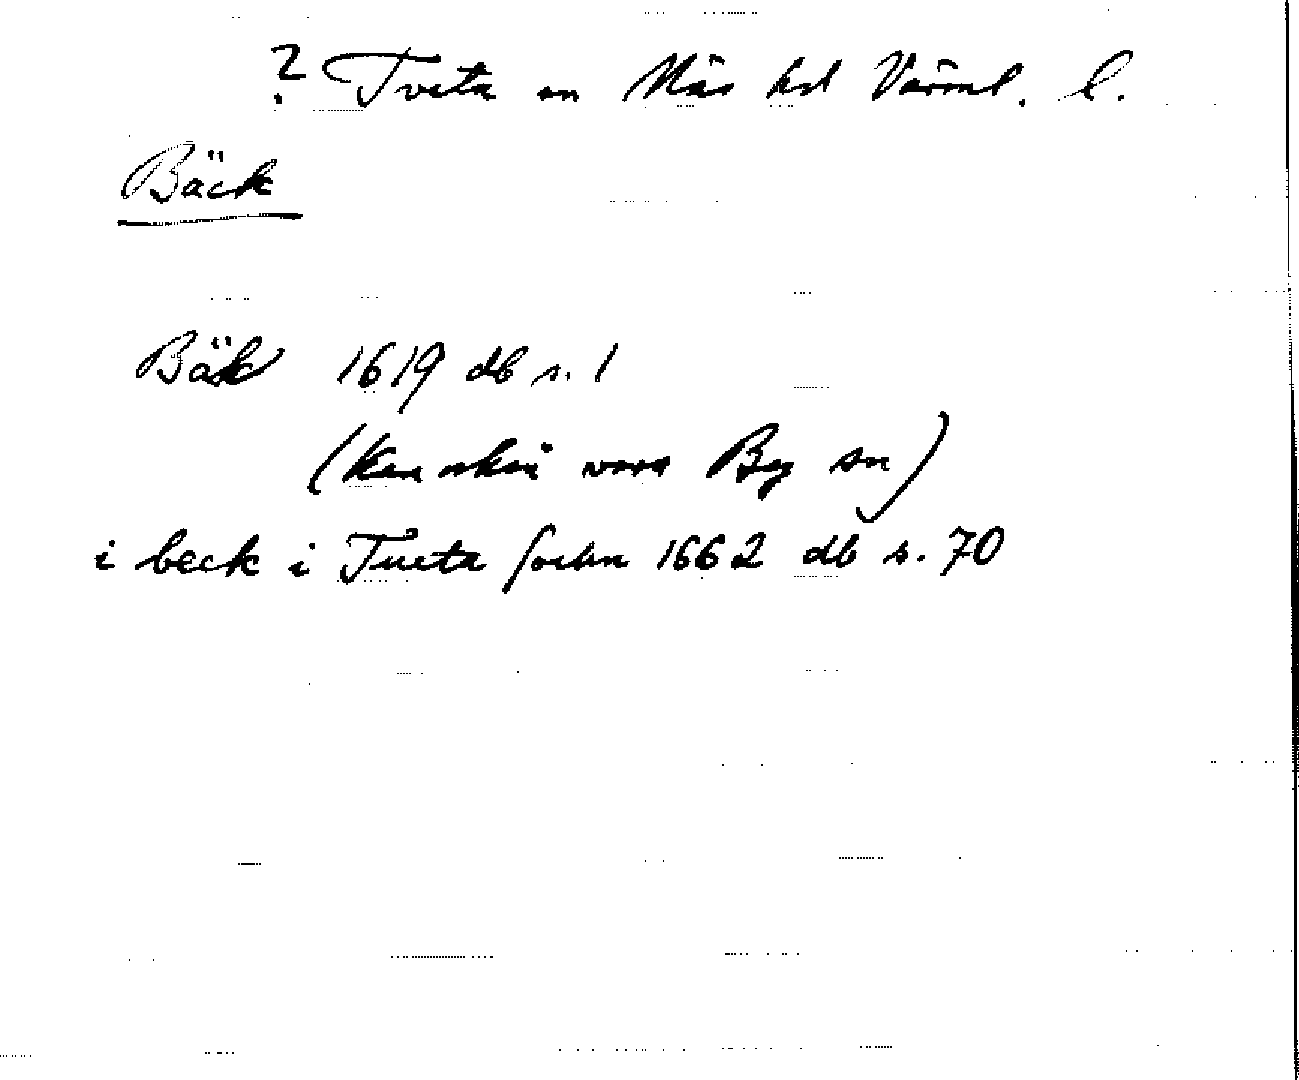 ? Tveta sn Näs hd Värml. l.
Bäck
Bäk 1619 db s. 1
(Kanske vara By sn)
i beck i Tueta sochn 1662 db s. 70